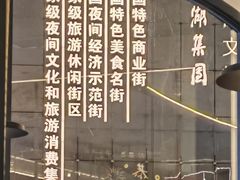 湖集团
文
国特色商业街
国特色美食名街
国夜间经济示范街
家级旅游休闲街区
家级夜间文化和旅游消费集
集